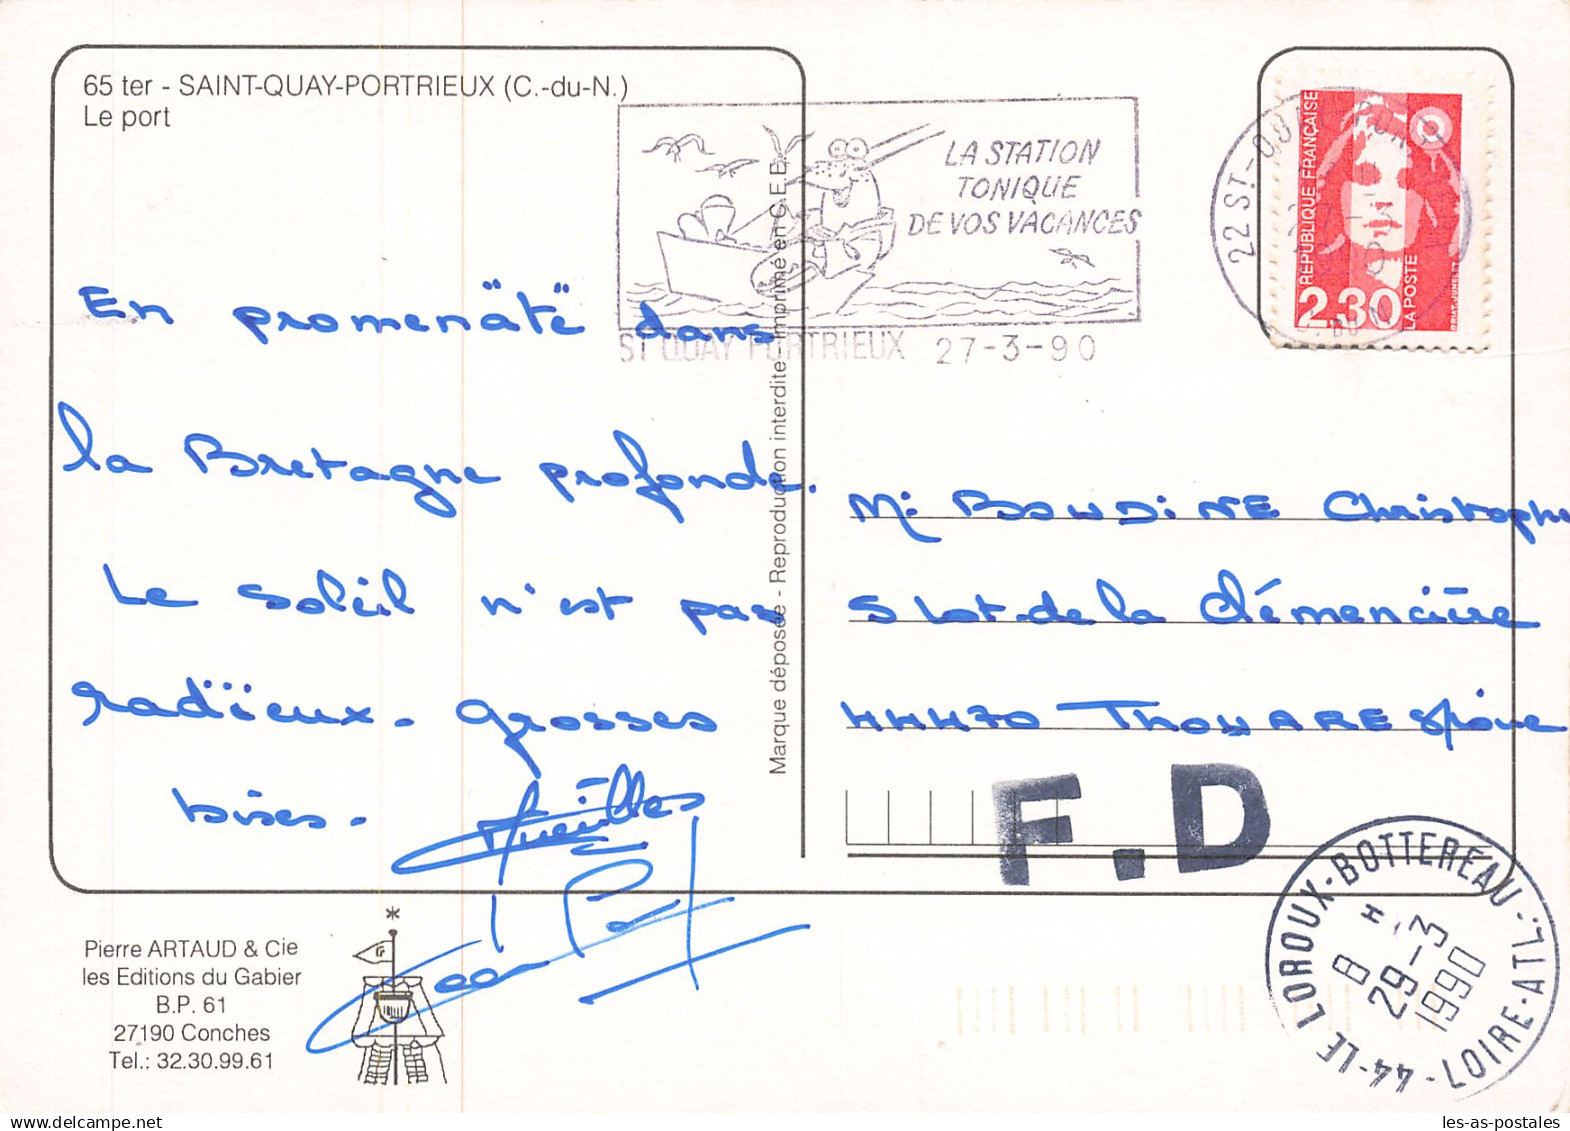 65 ter - SAINT-QUAY-PORTRIEUX (C.-du-N.)
Le port
LA STATION
TONIQUE
DE VOS VACANCES
ST QUAY PORTRIEUX 27-3-90
22 ST-QUAY
REPUBLIQUE FRANÇAISE
2,30
LA POSTE
En promenäte dans
la Bretagne profonde.
Le soleil n'est pas
radïeux - grosses
bises -
Marque déposée - Reproduction interdite - Imprimé en C.E.E.
M. BOUDINE Christophe
5 Lot. de la Clémencière
44470 THOUARE s/Loire
F.D
44-LE LOROUX-BOTTEREAU - LOIRE-ATL.
8 H
29-3
1990
Pierre ARTAUD & Cie
les Editions du Gabier
B.P. 61
27190 Conches
Tel.: 32.30.99.61
les-as-postales